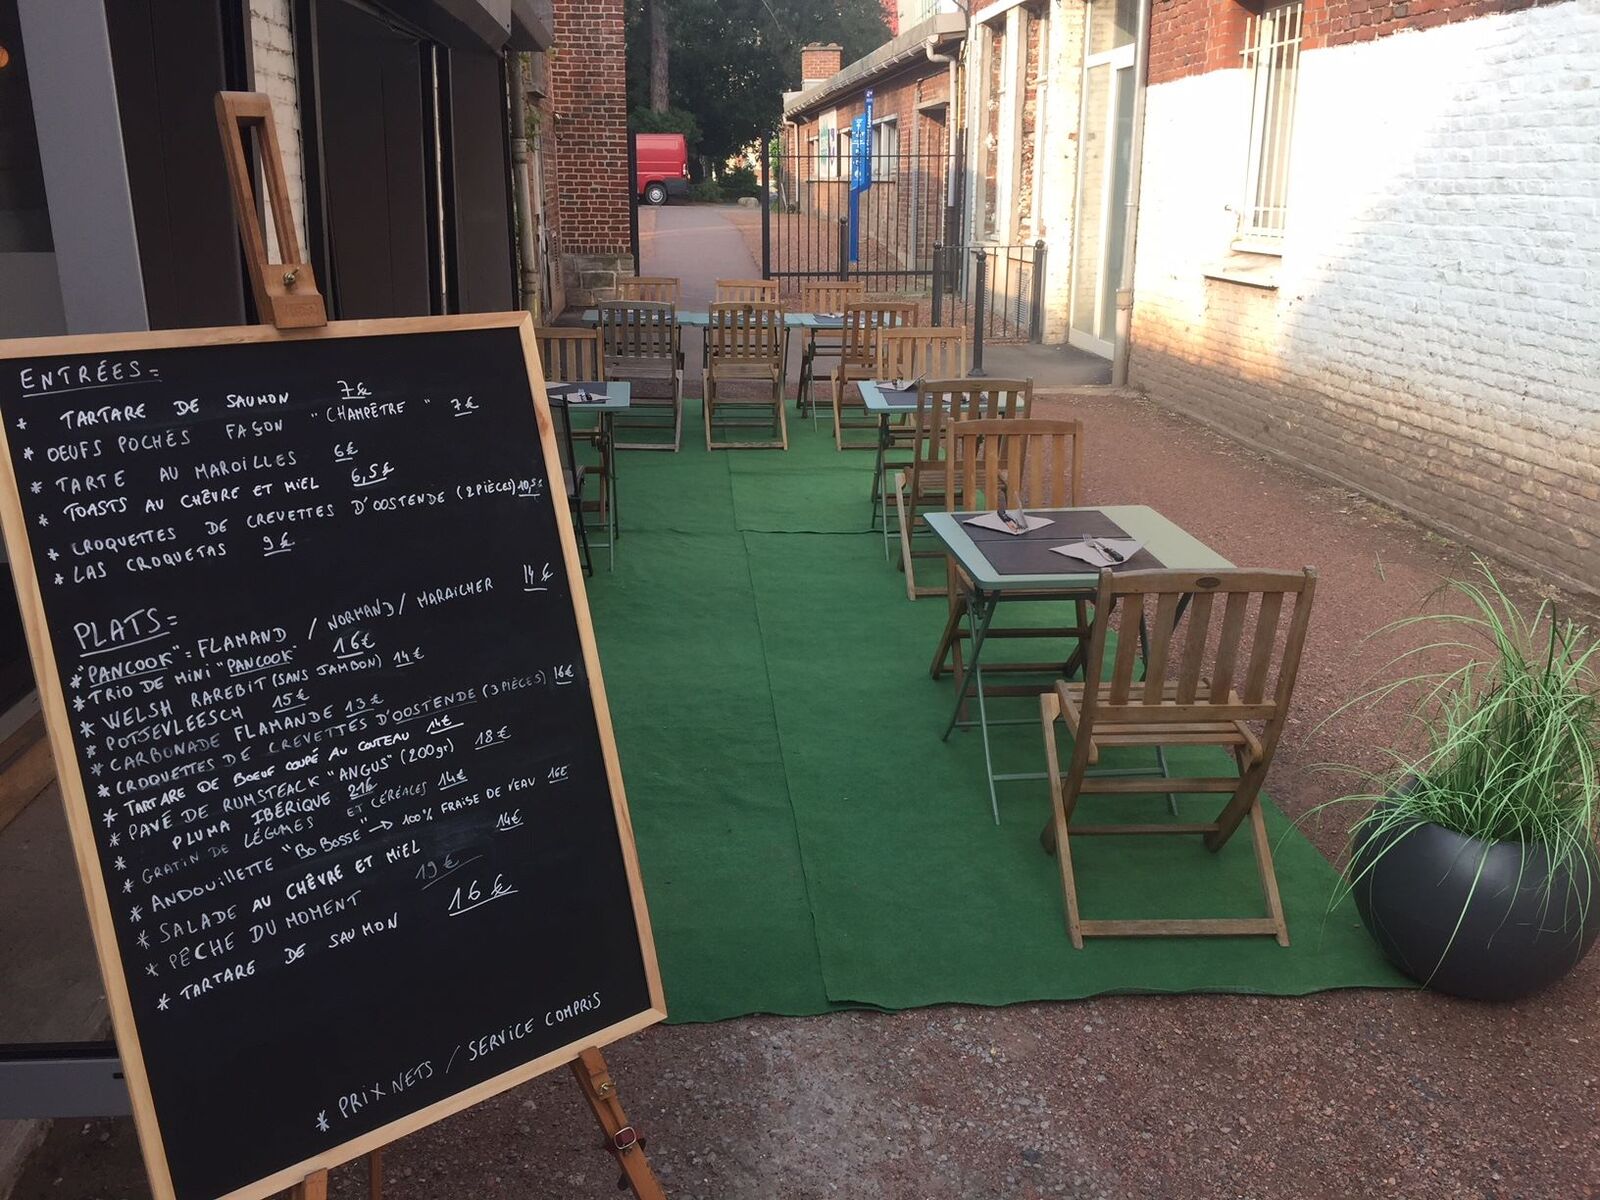 ENTRÉES=
* TARTARE DE SAUMON 7€
* OEUFS POCHÉS FAÇON "CHAMPÊTRE" 7€
* TARTE AU MAROILLES 6€
* TOASTS AU CHÈVRE ET MIEL 6,5€
* CROQUETTES DE CREVETTES D'OOSTENDE (2 PIÈCES) 10,5€
* LAS CROQUETAS 9€
PLATS=
* "PANCOOK" = FLAMAND / NORMAND / MARAICHER 14€
* TRIO DE MINI "PANCOOK" 16€
* WELSH RAREBIT (SANS JAMBON) 14€
* POTJEVLEESCH 15€
* CARBONADE FLAMANDE 13€
* CROQUETTES DE CREVETTES D'OOSTENDE (3 PIÈCES) 16€
* TARTARE DE BOEUF COUPÉ AU COUTEAU 14€
* PAVÉ DE RUMSTEACK "ANGUS" (200gr) 18€
* PLUMA IBÉRIQUE 21€
* GRATIN DE LÉGUMES ET CÉRÉALES 14€
* ANDOUILLETTE "BOBOSSE" → 100% FRAISE DE VEAU 16€
* SALADE AU CHÈVRE ET MIEL 14€
* PECHE DU MOMENT 19€
* TARTARE DE SAUMON 16€
* PRIX NETS / SERVICE COMPRIS